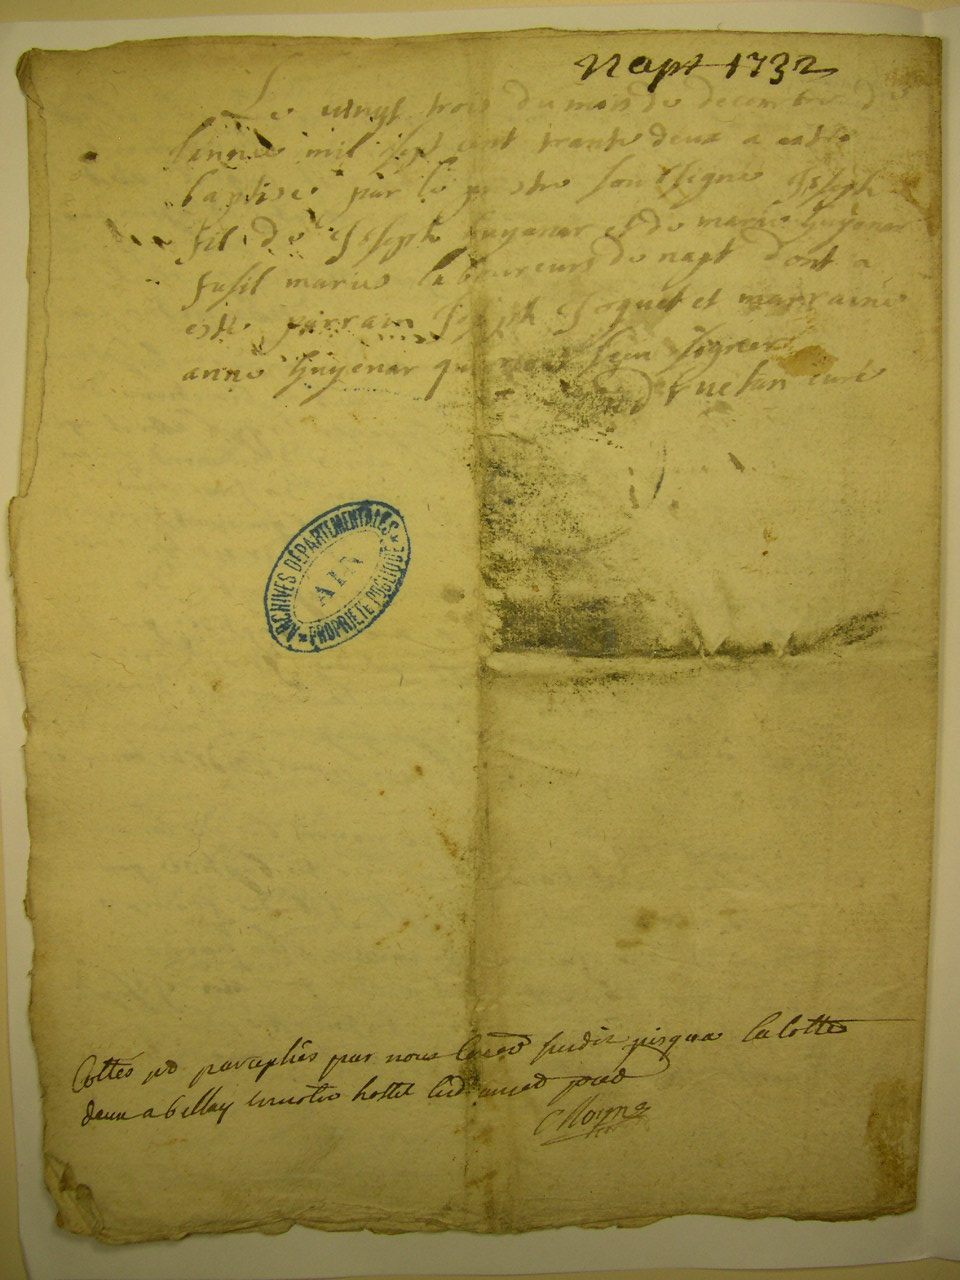 Napt 1732
Le vingt trois du mois de decembre de
lannee mil sept cent trante deux a esté
baptise par le prestre soussigne Joseph
fil de Joseph Guyenar et de marie Guyenar
fusil maries laboureurs de napt dont a
esté parrain Joseph Joquet et marraine
anne Guyenar qui signer
curé
ARCHIVES DÉPARTEMENTALES
AIN
PROPRIÉTÉ PUBLIQUE
Cottes paraphés par nous jusqua la cotte
deux a bellay hostel